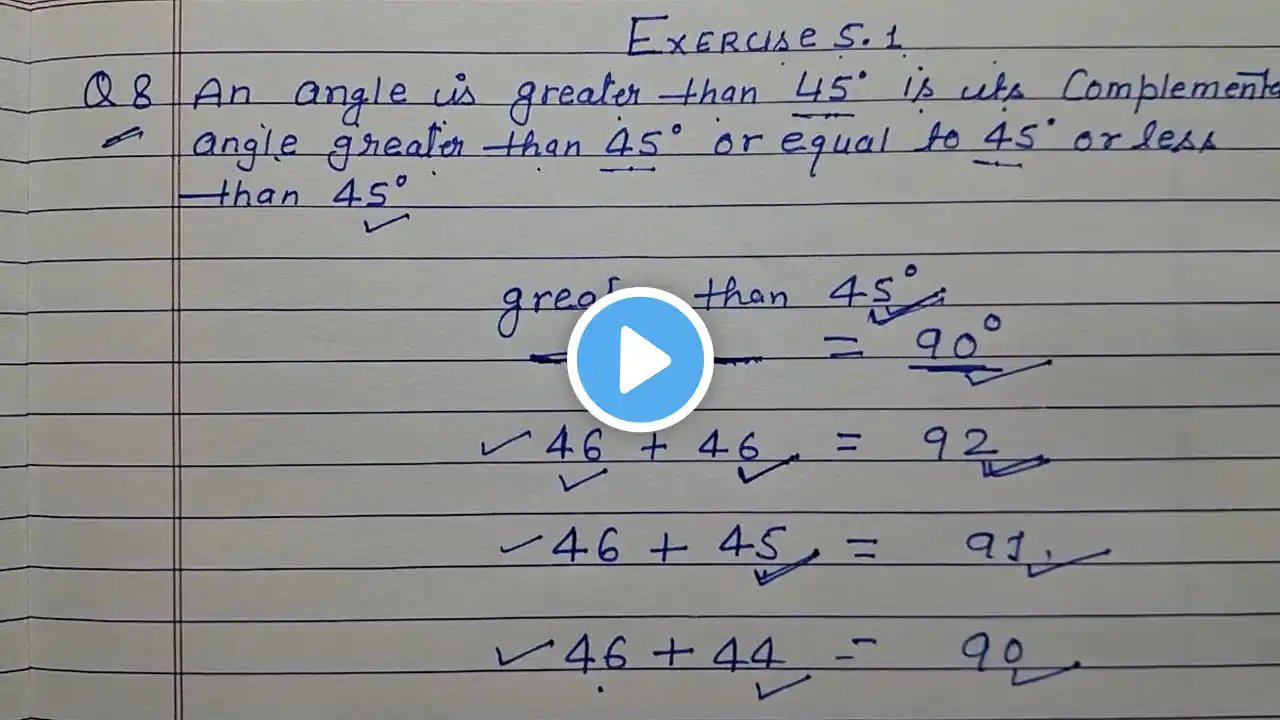 EXERCISE 5.1
Q 8 An angle is greater than 45° is its Complementa
angle greater than 45° or equal to 45° or less
than 45°
than 45°
= 90°
46 + 46 = 92
46 + 45 = 91.
46 + 44 = 90